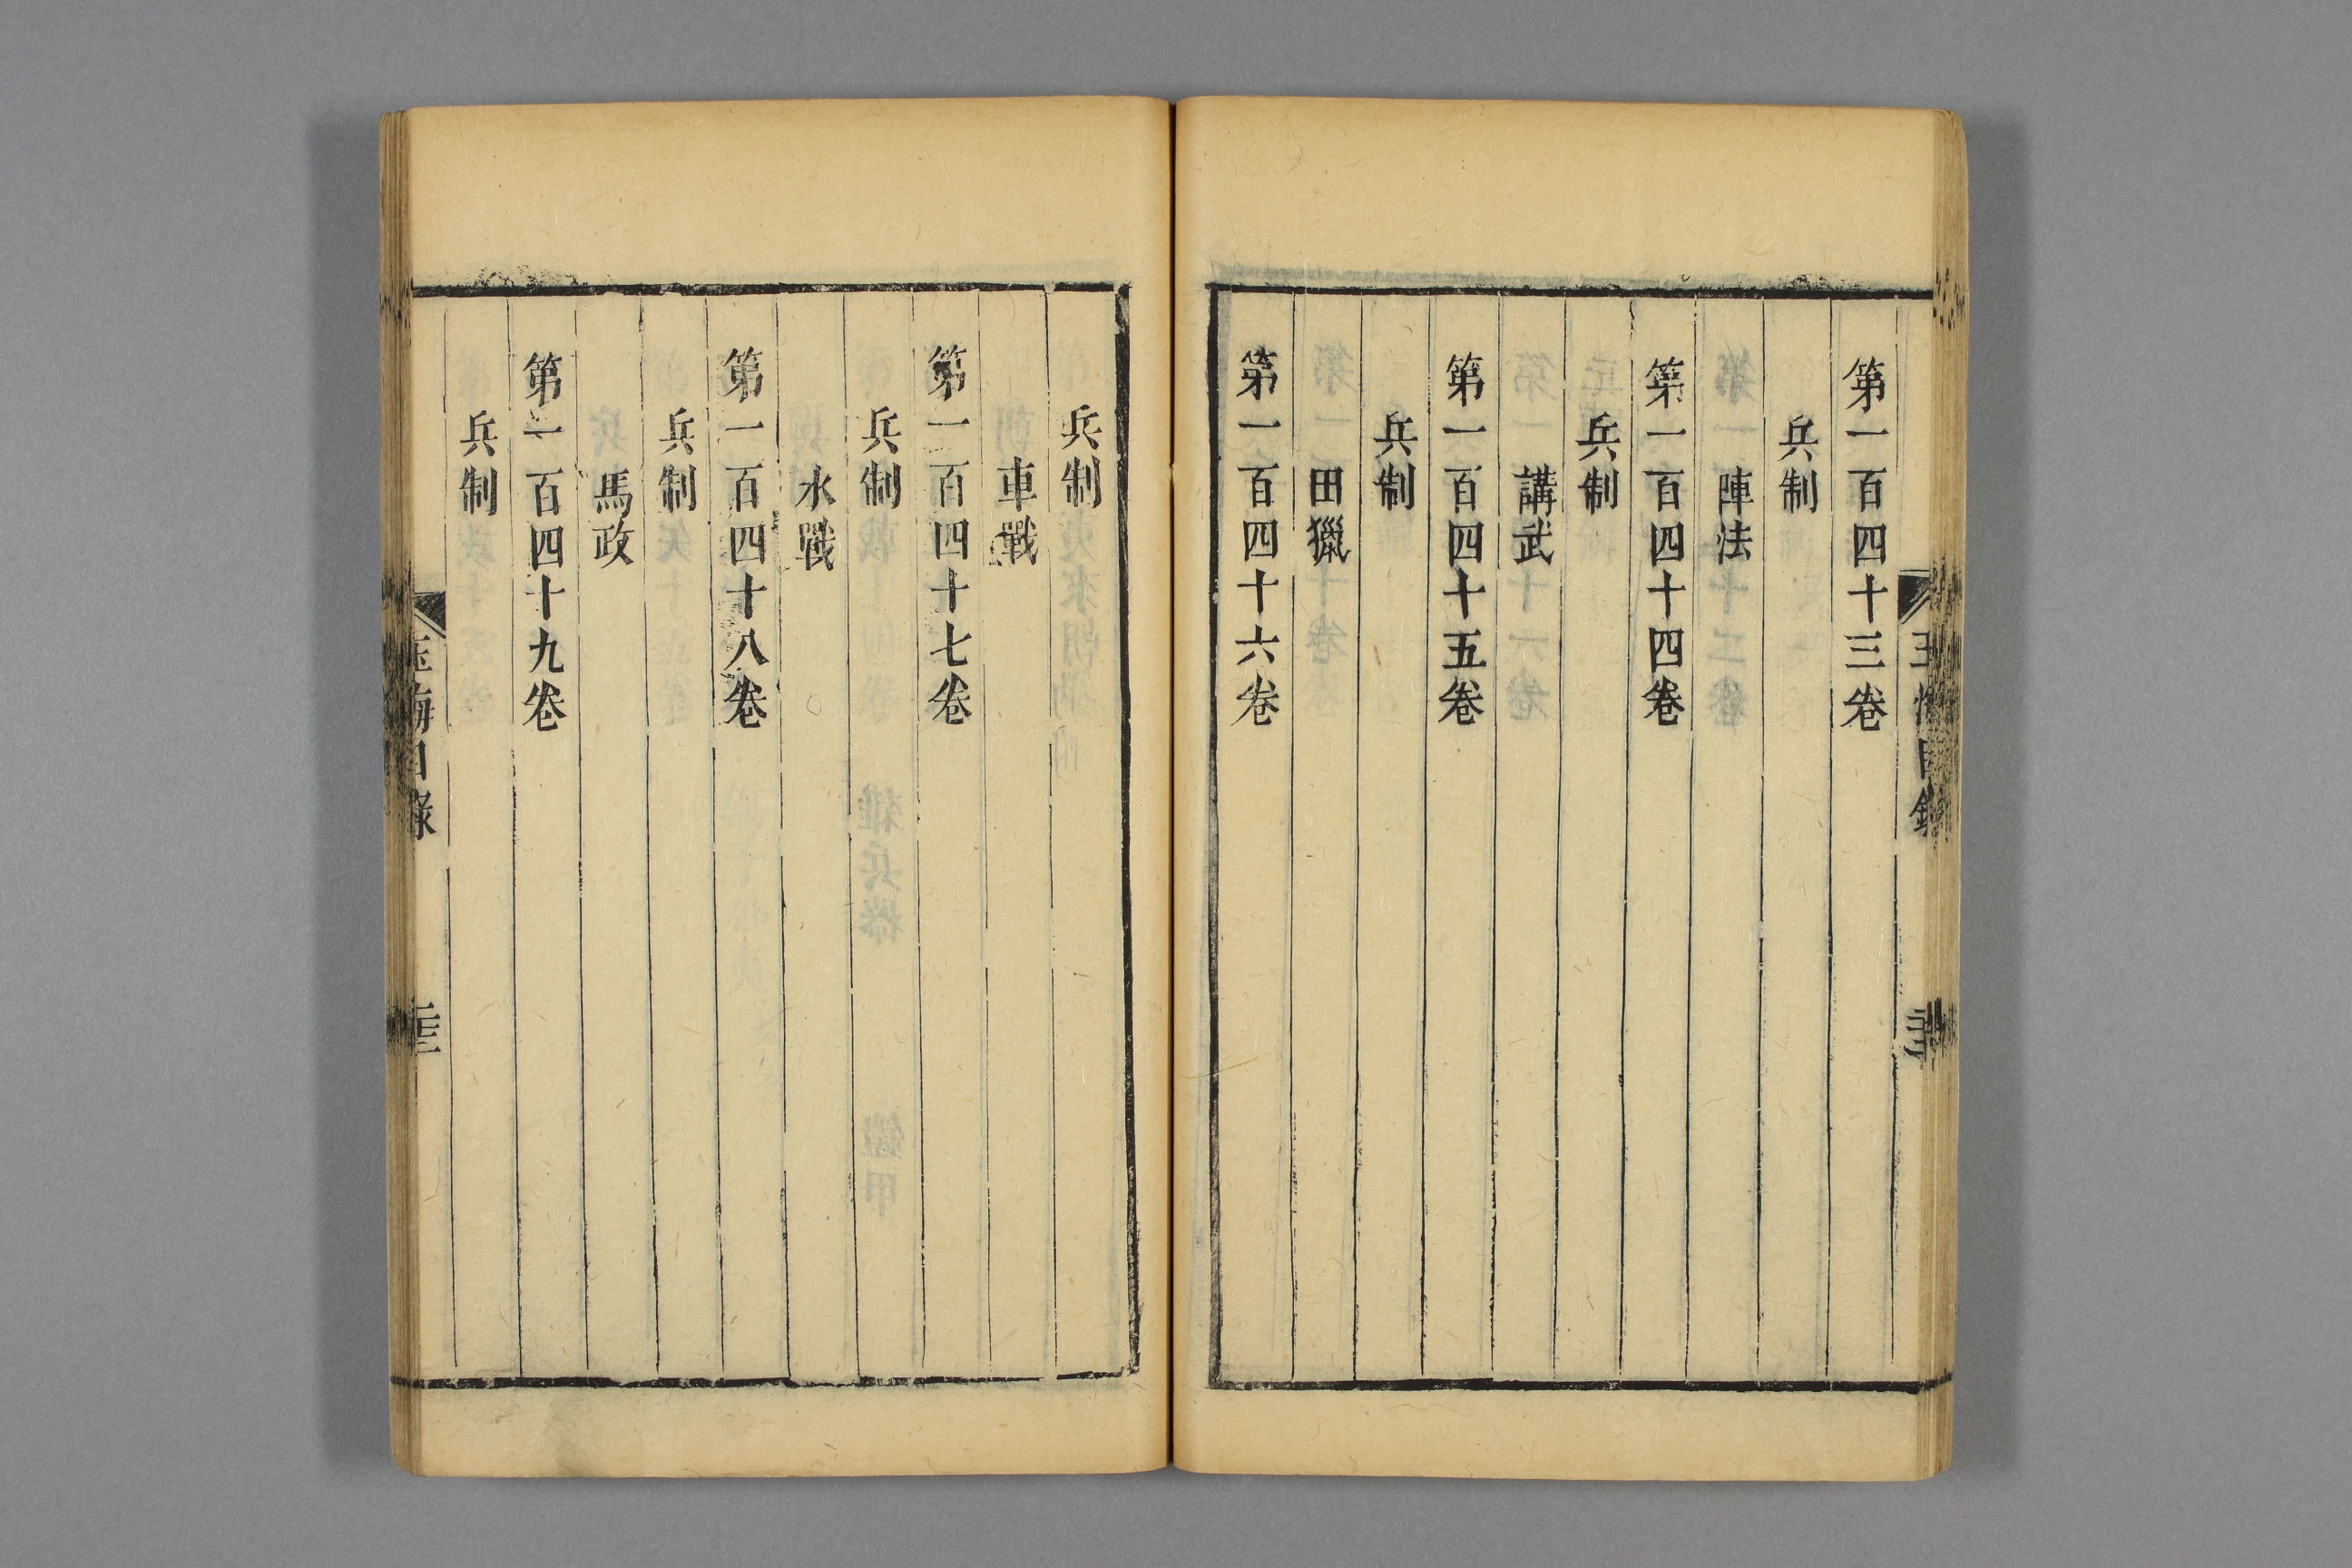 第一百四十三卷
兵制
陣法
第一百四十四卷
兵制
講武
第一百四十五卷
兵制
田獵
第一百四十六卷
兵制
車戰
第一百四十七卷
兵制
水戰
第一百四十八卷
兵制
馬政
第一百四十九卷
兵制
玉海目錄